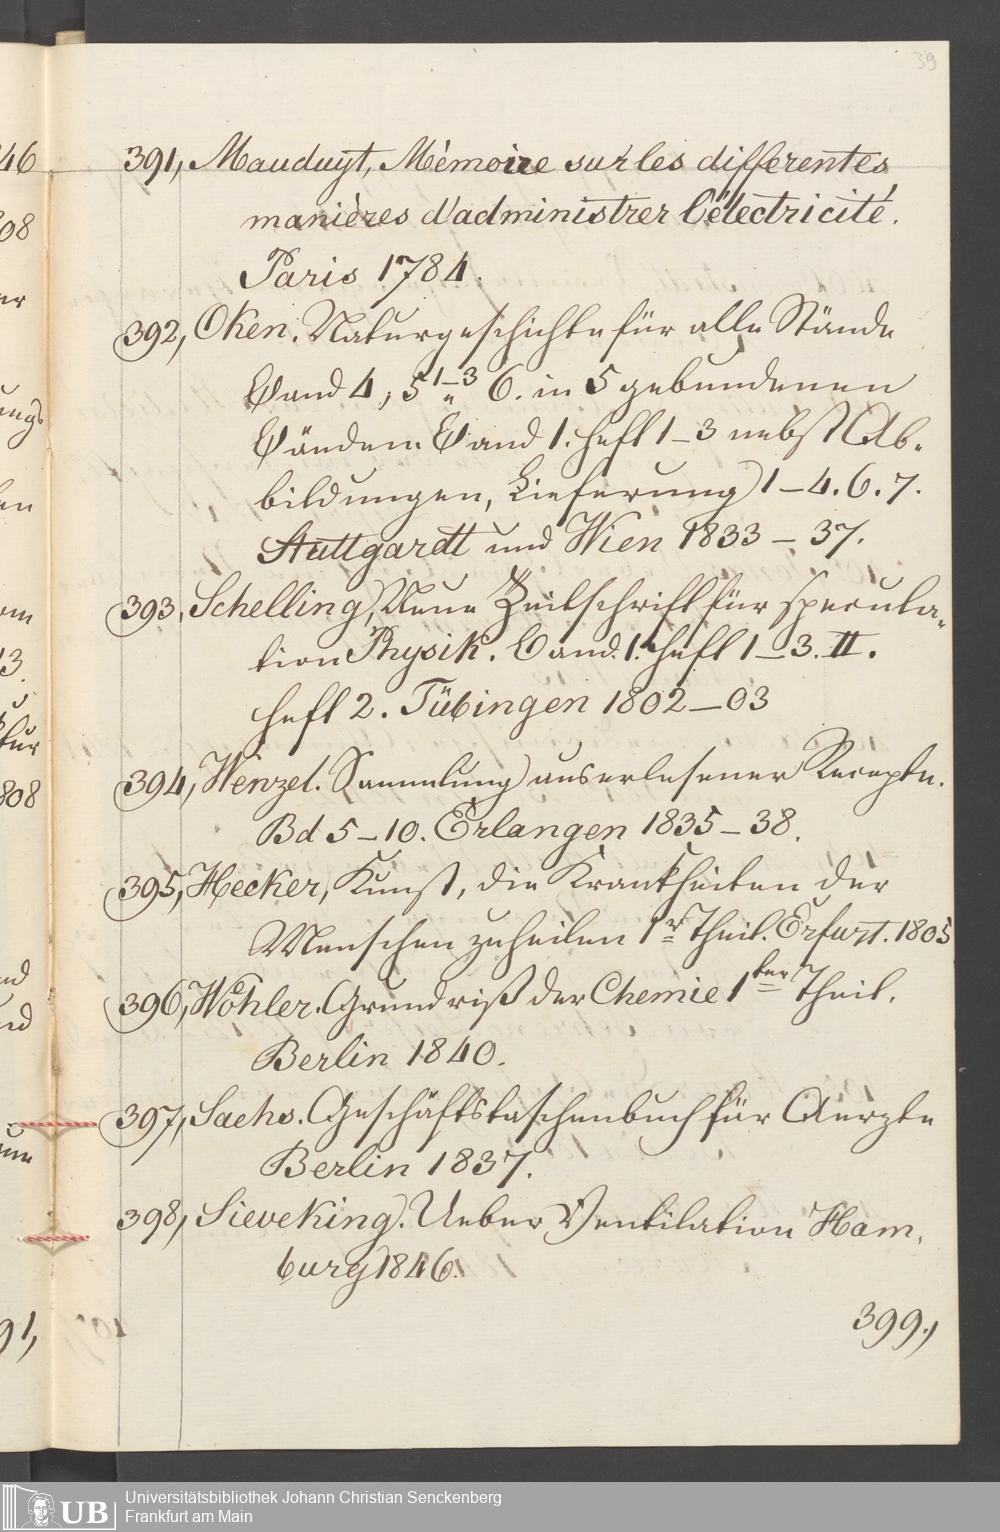 39
391, Mauduyt, Mémoire sur les differentes
manières d'administrer l'électricité.
Paris 1784.
392, Oken. Naturgeschichte für alle Stände
Band 4, 5 1–3 6. in 5 gebundenen
Bänden Band 1. Heft 1–3 nebst Ab-
bildungen, Lieferung 1–4. 6. 7.
Stuttgardt und Wien 1833–37.
393, Schelling, Neue Zeitschrift für specula-
tion Physik. Band. 1. Heft 1–3. II.
Heft 2. Tübingen 1802–03
394, Wenzel. Sammlung auserlesener Recepte.
Bd 5–10. Erlangen 1835–38.
395, Hecker, Kunst, die Krankheiten der
Menschen zu heilen 1r Theil. Erfurt. 1805
396, Wöhler. Grundriß der Chemie 1ter Theil.
Berlin 1840.
397, Sachs. Geschäftstaschenbuch für Aerzte
Berlin 1837.
398, Sieveking. Ueber Ventilation Ham-
burg 1846.
399.,
UB Universitätsbibliothek Johann Christian Senckenberg
Frankfurt am Main